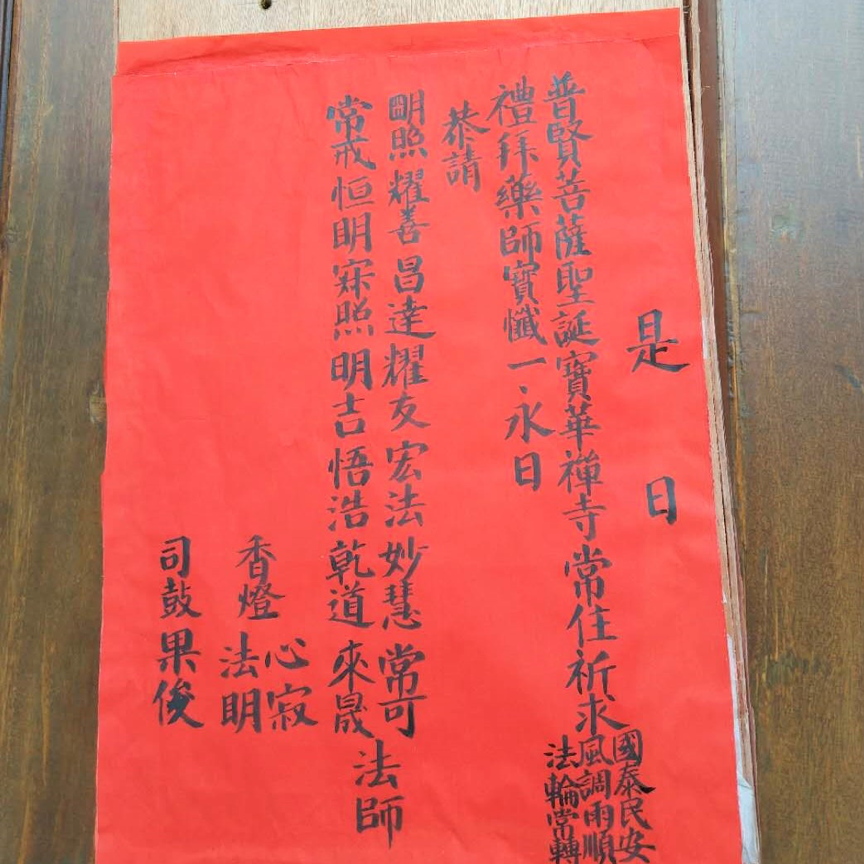 是日
普賢菩薩聖誕寶華禪寺常住祈求
國泰民安
風調雨順
法輪常轉
禮拜藥師寶懺一、永日
恭請
明照耀善昌達耀友宏法妙慧常可
常戒恒明寂照明吉悟浩乾道來晟
法師
香燈
心寂
法明
司鼓果俊